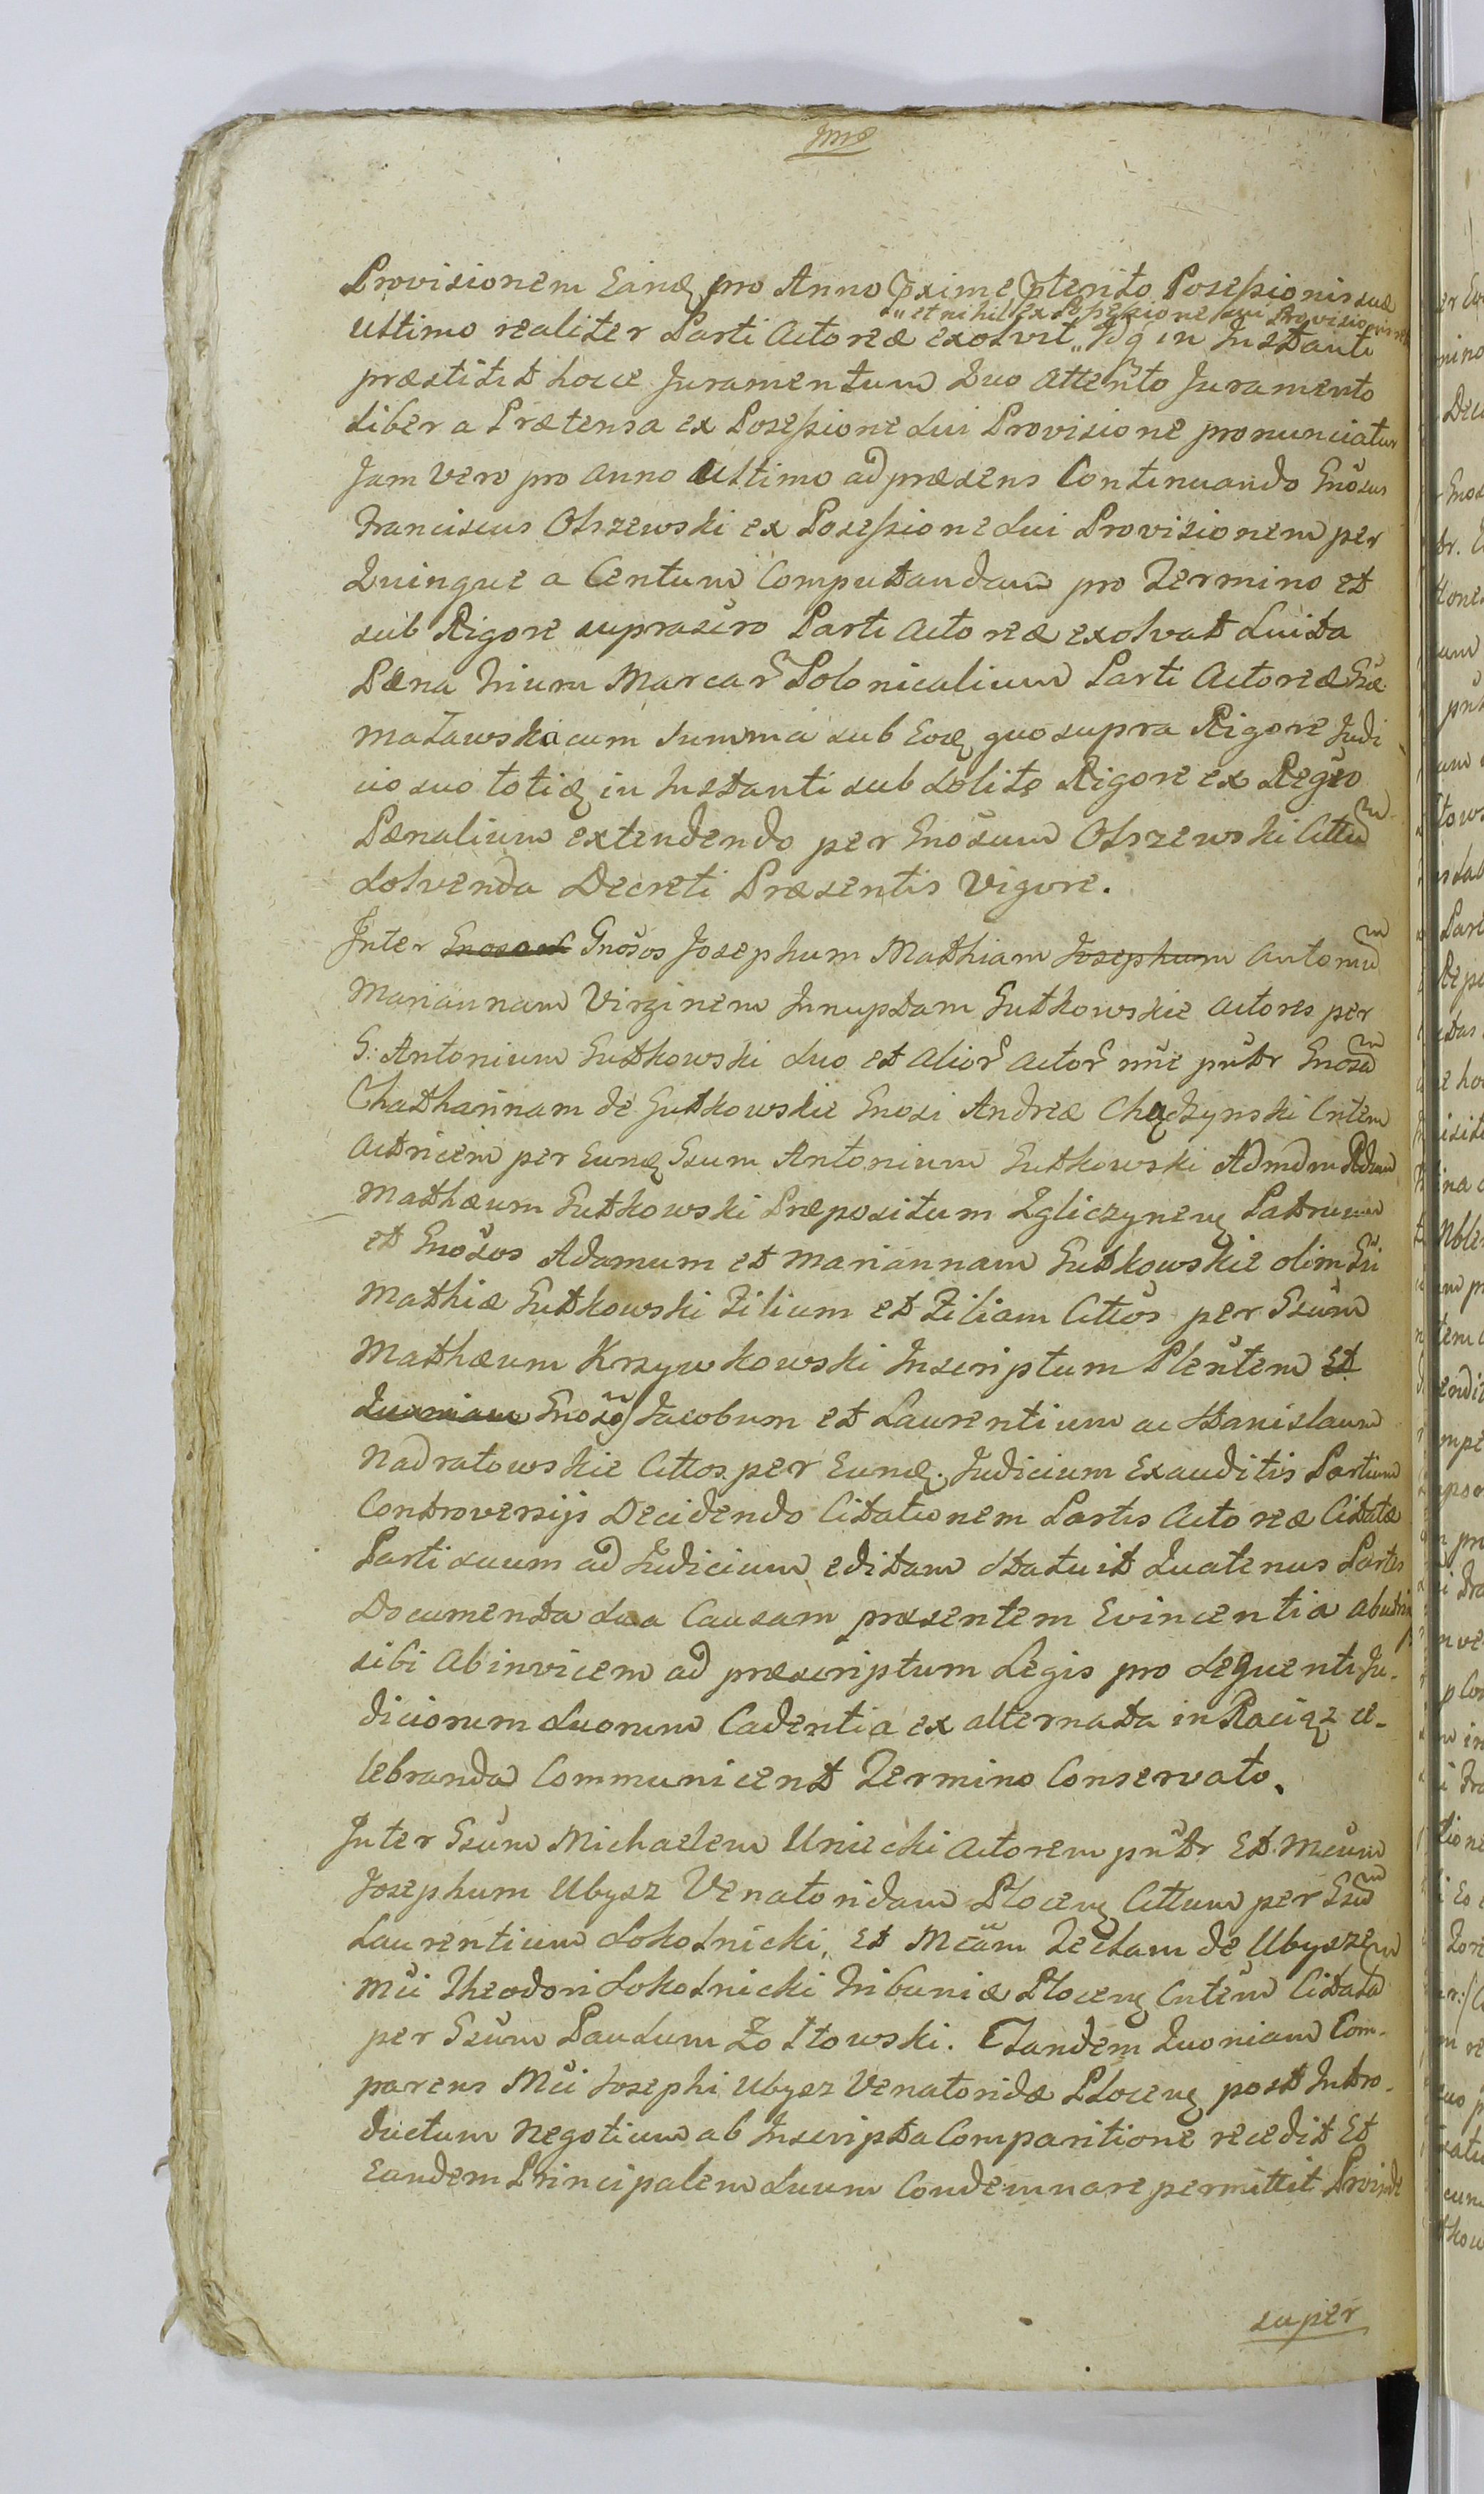 Provisionem Eandq pro Anno pxime ptento Possessionis suæ
„et nihil ex Possessione sui Provisionis
ultimo realiter Parti Actoreæ exolvit„ Idq in Instanti
præstitit hocce Juramentum Quo attento Juramento
libera Prætensa ex Possessione sui Provisione pronunciatur
Jam vero pro anno ultimo ad præsens Continuando Gnosus
Franciscus Olszewski ex Possessione sui Provisionem per
Quinque a Centum Computandam pro Termino et
sub Rigore suprascro Parti Actoreæ exolvat Luita
Pæna trium Marcar Polonicalium Parti Actoreæ Gsæ
Matawska cum summa sub Eoq quo supra Rigore Judi
cio suo totiq in Instanti sub solito Rigore ex Regro
Pænalium extendendo per Gnosum Olszewski Cittum
solvenda Decreti Præsentis Vigore.
Inter Gnosos Josephum Mathiam Josephum Antonium
Mariannam Virginem Innuptam Gutkowskie Actores per
G: Antonium Gutkowski suo et alior Actor nne pntr Gnosam
Chatharinam de Gutkowskie Gnosi Andreæ Chądzynski Cntem
Actricem per Eunq Gsum Antonium Gutkowski Admdm Rdum
Mathæum Gutkowski Præpositum Zgliczynenq Patruum
et Gnosos Adamum et Mariannam Gutkowskie olim Gsi
Mathiæ Gutkowski Filium et Filiam Cittos per Gsum
Mathæum Krzywkowski Inscriptum Plentem Et
Quoniam Gnosos Jacobum et Laurentium ac Stanislaum
Nadratowskie Cittos per Eunq. Judicium Exauditis Partium
Controversijs Decidendo Citationem Partis Actoreæ Citatæ
Parti suum ad Judicium editam Statuit Quatenus Partes
Documenta sua Causam præsentem Evincentia abutrinq
sibi abinvicem ad præscriptum Legis pro sequenti Ju-
diciorum suorum Cadentia ex alternata in Raciąz ce-
lebranda Communicent Termino Conservato.
Inter Gsum Michaelem Uniecki Actorem pntr Et Mcum
Josephum Ubysz Venatoridam Plocenq Cittum per Gsum
Laurentium Sokolnicki, Et Mcam Teclam de Ubysze
Mci Theodori Sokolnicki Tribuniæ Plocenq Cntem Citatam
per Gsum Paulum Zoltowski. Tandem Quoniam Com-
parens Mci Josephi Ubysz Venatoridæ Plocenq post Intro-
ductum Negotium ab Inscripta Comparitione recedit Et
Eandem Principalem suum Condemnare permittit Proinde
super